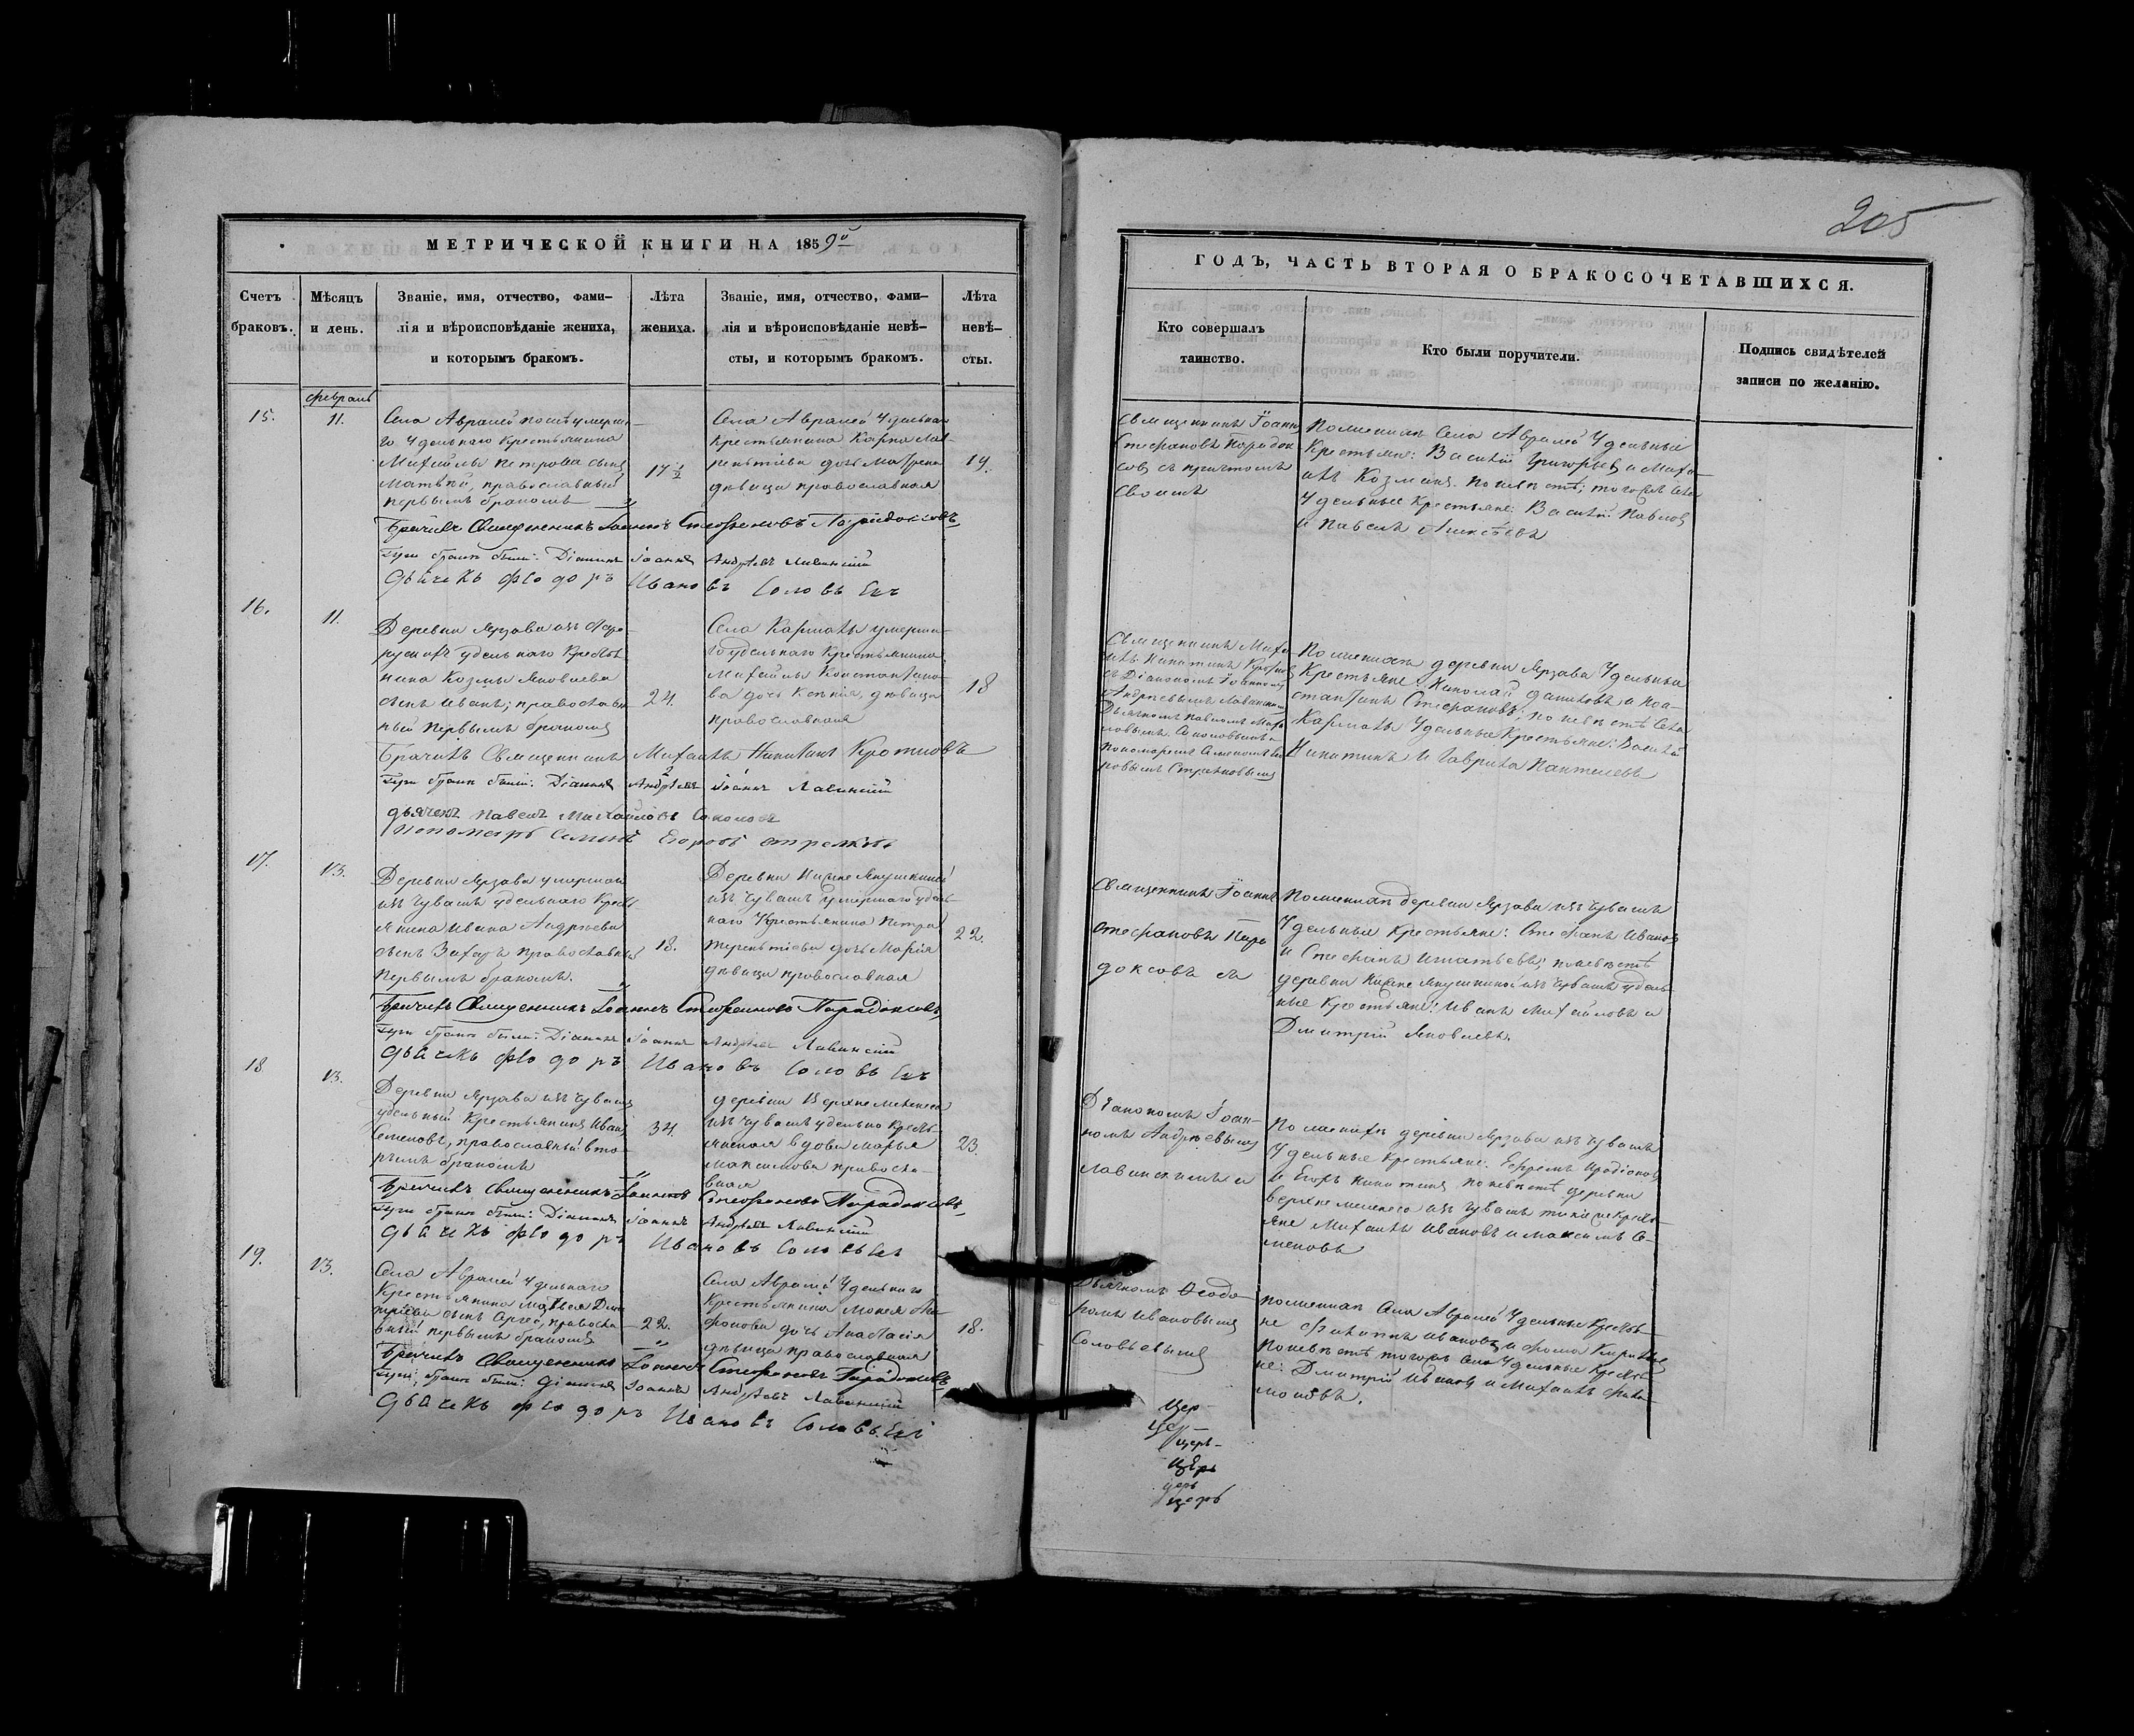 205
МЕТРИЧЕСКОЙ КНИГИ НА 1859й
Счетъ браковъ.
Мѣсяцъ и день.
Званіе, имя, отчество, фами-
лія и вѣроисповѣданіе жениха,
и которымъ бракомъ.
Лѣта жениха.
Званіе, имя, отчество, фами-
лія и вѣроисповѣданіе невѣ-
сты, и которымъ бракомъ.
Лѣта невѣ-
сты.
февраль
15.
11.
Села Авралей
го Удельнаго Крестьянина
Михайлы Петрова сынъ
Матвей, православный
первымъ бракомъ
17 ½
Села Авралей Удельнаго
Крестьянина Карпа Лав-
рентіева дочь Матрена
девица православная
19.
Бракъ Священникъ Іоаннъ Стефановъ Парадоксовъ
При бракѣ были: Діаконъ Іоаннъ Андреевъ Лавинскій
Дьячекъ Феодоръ Ивановъ Соловьевъ
16.
11.
Деревни Ярзава изъ
удельнаго Кресть
нина Козмы Яковлева
сынъ Иванъ; православ
ный первымъ бракомъ
24.
Села Кармалы умерша
го удельнаго Крестьянина
Михайлы Константино-
ва дочь Ксенія, девица
православная
18
Священникъ Михаилъ Никитинъ Кротковъ
При бракѣ были: Діаконъ Андреевъ Іоаннъ Лавинскій
дьячекъ Павелъ Михайловъ Соколовъ
Пономарь Семенъ Егоровъ Стрелковъ
17.
13.
Деревни Ярзава умершаго
изъ Чувашъ удельнаго Кресть
янина Ивана Андреева
сынъ Захаръ православный
первымъ бракомъ.
18.
Деревни Нижне Якушкиной
изъ Чувашъ умершаго удель-
наго Крестьянина Петра
Терентіева дочь Марія
девица православная
22.
Священникъ Іоаннъ Стефановъ Парадоксовъ
При бракѣ были: Діаконъ Іоаннъ Андреевъ Лавинскій
Дьячекъ Феодоръ Ивановъ Соловьевъ
18
13.
Деревни Ярзава изъ Чувашъ
удельный Крестьянинъ Иванъ
Семеновъ, православный вто-
рымъ бракомъ
34.
деревни
изъ Чувашъ удельно Кресть-
янская вдова Марья
Максимова правосла-
вная
23.
Священникъ Іоаннъ Стефановъ Парадоксовъ
При бракѣ были: Діаконъ Іоаннъ Андреевъ Лавинскій
Дьячекъ Феодоръ Ивановъ Соловьевъ
19.
13.
Села Авралей Удельнаго
Крестьянина Матвея Дми
тріева сынъ Сергей, правосла-
вный первымъ бракомъ
22.
Села Авралей Удельнаго
Крестьянина Мокея
дочь Анастасія
девица православная
18.
Священникъ Іоаннъ Стефановъ Парадоксовъ
При бракѣ были: Діаконъ Іоаннъ Андреевъ Лавинскій
Дьячекъ Феодоръ Ивановъ Соловьевъ
ГОДЪ, ЧАСТЬ ВТОРАЯ О БРАКОСОЧЕТАВШИХСЯ.
Кто совершалъ
таинство.
Кто были поручители.
Подпись свидѣтелей
записи по желанію.
Священникъ Іоаннъ
Стефановъ Парадок
совъ съ причтомъ
своимъ
По женихѣ Села Авралей Удельные
Крестьяне: Василій Григорьевъ и Миха-
илъ Козминъ. по невестѣ; тогожъ села
Удельные Крестьяне: Василій Павловъ
и Павелъ Алексѣевъ
Священникъ Миха
илъ Никитинъ Кротковъ
съ Діакономъ Іоанномъ
Андреевымъ Лавинскимъ
Дьячкомъ Павломъ Миха
йловымъ Соколовымъ
пономаремъ Семеномъ Его
ровымъ Стрелковымъ
По женихѣ деревни Ярзава Удельные
Крестьяне Николай Даниловъ и Кон-
стантинъ Стефановъ; по невестѣ Села
Кармалы Удельные Крестьяне: Василій
Никитинъ и Гаврила Пантелеевъ
Священникъ Іоаннъ
Стефановъ Пара
доксовъ съ
По женихѣ деревни Ярзава изъ Чувашъ
Удельные Крестьяне: Стефанъ Ивановъ
и Стефанъ Игнатьевъ; по невестѣ
деревни Нижне Якушкиной изъ Чувашъ удель-
ные Крестьяне: Иванъ Михайловъ и
Дмитрій Яковлевъ.
Діакономъ Іоан-
номъ Андреевымъ
Лавинскимъ и
По женихѣ деревни Ярзава изъ Чувашъ
Удельные Крестьяне: Ефремъ Иродіоновъ
и Егоръ Никитинъ по невестѣ деревни
изъ Чувашъ Кресть-
яне Михаилъ Ивановъ и Максимъ Се-
меновъ
Дьячкомъ Феодо-
ромъ Ивановымъ
Соловьевымъ
По женихѣ Села Авралей Удельные Кресть-
не Филиппъ Ивановъ и Фома
По невестѣ тогожъ Села Удельные Крестья
не: Дмитрій Ивановъ и Михаилъ Фили-
моновъ.
Цер-
Цер-
церь-
церь
церь
церь